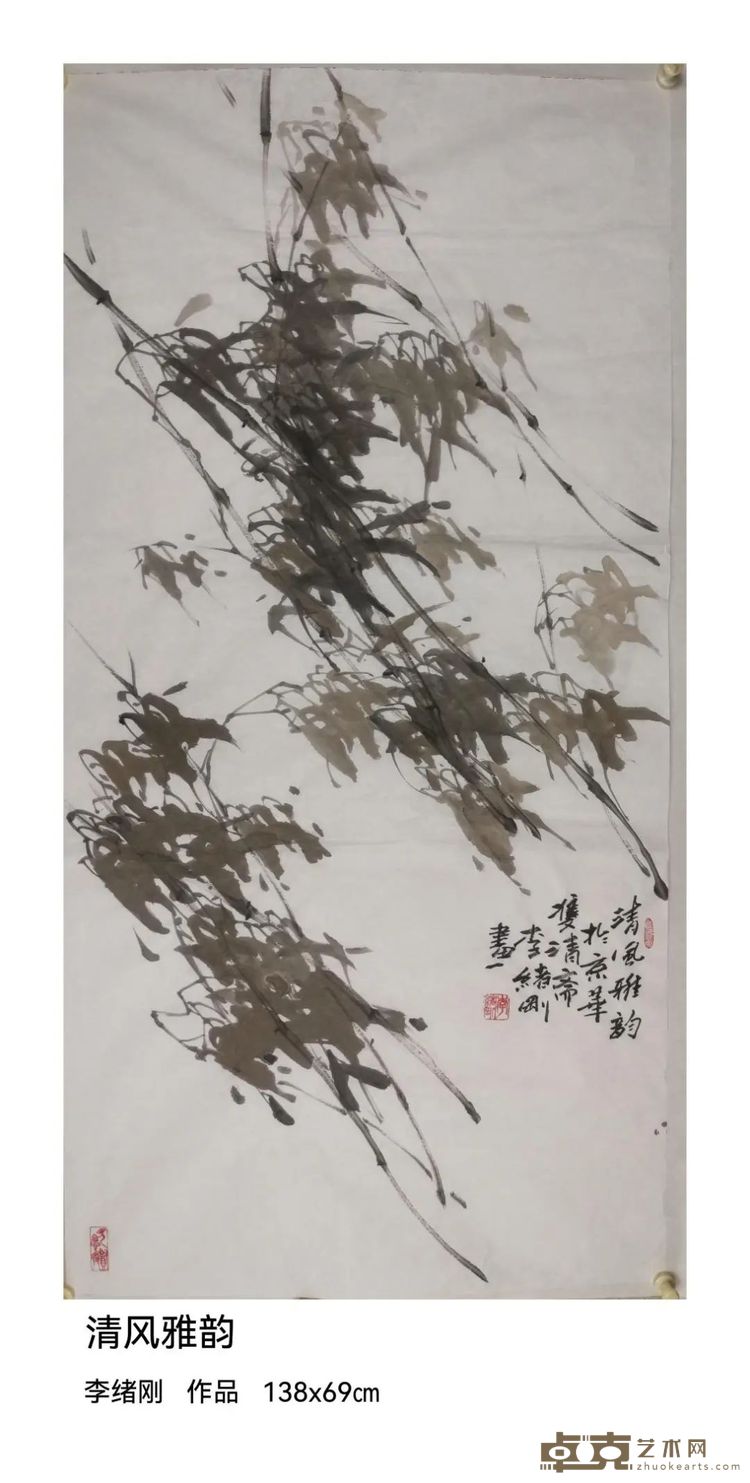 清風雅韵
於京華
雙清斋
李緒刚
畫一
清风雅韵
李绪刚 作品 138x69㎝
卓克艺术网
zhuokearts.com